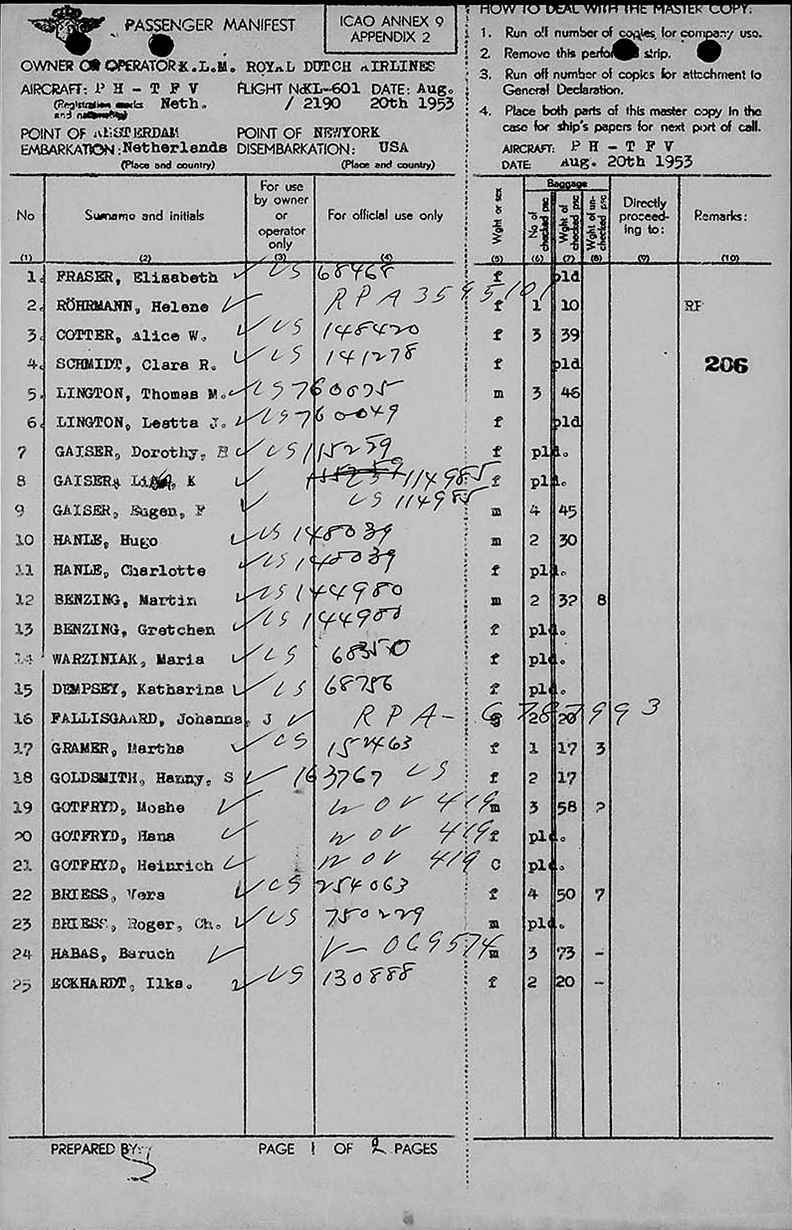 PASSENGER MANIFEST
ICAO ANNEX 9
APPENDIX 2
HOW TO DEAL WITH THE MASTER COPY:
1. Run off number of copies for company use.
2. Remove this strip.
3. Run off number of copies for attachment to General Declaration.
4. Place both parts of this master copy in the case for ship's papers for next port of call.
AIRCRAFT: P H - T F V
DATE: Aug. 20th 1953
OWNER OR OPERATOR K.L.M. ROYAL DUTCH AIRLINES
AIRCRAFT: P H - T F V FLIGHT No KL-601 DATE: Aug.
(Registration marks and nationality) Neth. / 2190 20th 1953
POINT OF AMSTERDAM POINT OF NEWYORK
EMBARKATION: Netherlands DISEMBARKATION: USA
(Place and country) (Place and country)
No Surname and initials For use by owner or operator only For official use only Wght or sex Baggage No of checked pac Wght of checked pac Wght of un-checked pac Directly proceeding to: Remarks:
(1) (2) (3) (4) (5) (6) (7) (8) (9) (10)
1. FRASER, Elisabeth ✓ US 68468 f pld
2. RÖHRMANN, Helene ✓ RPA 3595101 f 1 10 RF
3. COTTER, Alice W. ✓ US 148420 f 3 39
4. SCHMIDT, Clara R. ✓ US 141278 f pld 206
5. LINGTON, Thomas M. ✓ US 760075 m 3 46
6. LINGTON, Leatta J. ✓ US 760049 f pld
7 GAISER, Dorothy, E ✓ US 115259 f pld.
8 GAISER, K ✓ 115259 US 114985 f pld.
9 GAISER, Eugen, F ✓ US 114985 m 4 45
10 HANLE, Hugo ✓ US 148039 m 2 30
11 HANLE, Charlotte ✓ US 148039 f pld.
12 BENZING, Martin ✓ US 144980 m 2 32 8
13 BENZING, Gretchen ✓ US 144980 f pld.
14 WARZINIAK, Maria ✓ US 68350 f pld.
15 DEMPSEY, Katharina ✓ US 68756 f pld.
16 FALLISGAARD, Johanna, J ✓ RPA- 6787993 2 20
17 GRAMER, Martha ✓ US 152463 f 1 17 3
18 GOLDSMITH, Hanny, S ✓ 163767 US f 2 17
19 GOTFRYD, Moshe ✓ NOV 419 m 3 58 2
20 GOTFRYD, Hana ✓ NOV 419 f pld.
21 GOTFRYD, Heinrich ✓ NOV 419 C pld.
22 BRIESS, Vera ✓ US 254063 f 4 50 7
23 BRIESS, Roger, Ch. ✓ US 750229 m pld.
24 HABAS, Baruch ✓ V-069574 m 3 73 -
25 ECKHARDT, Ilka. ✓ US 130888 f 2 20 -
PREPARED BY: PAGE 1 OF 2 PAGES